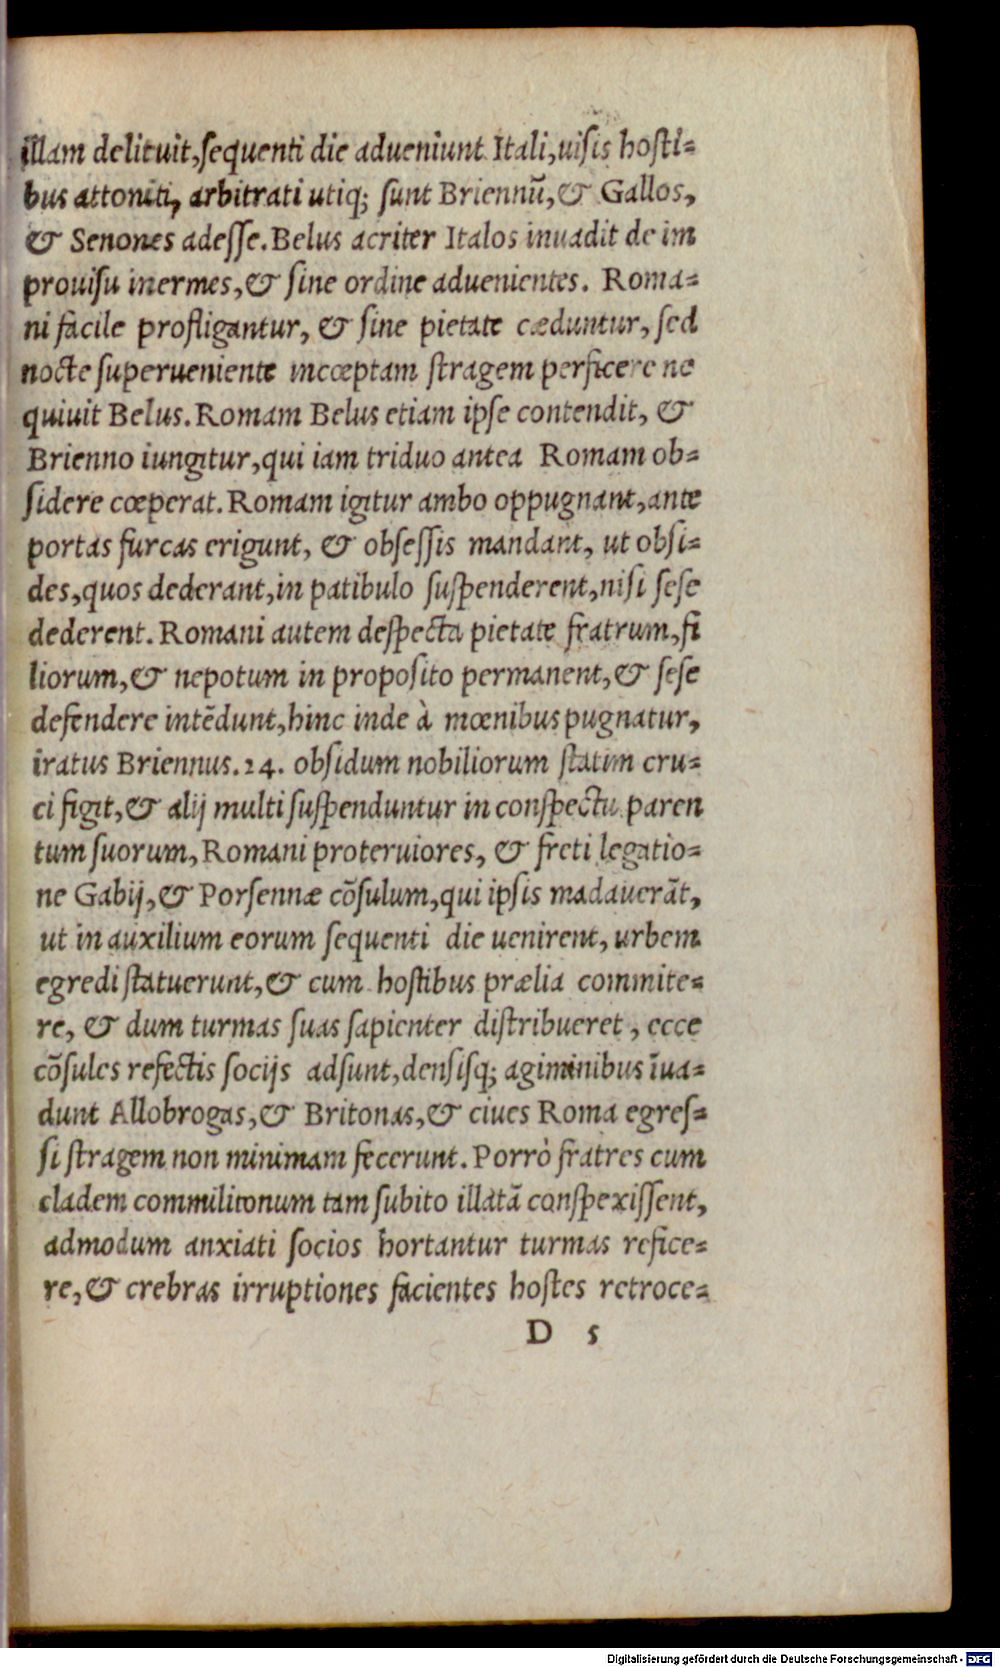 illam delituit,sequenti die adueniunt Itali,uisis hosti-
bus attoniti, arbitrati utiq; sunt Briennũ,& Gallos,
& Senones adesse.Belus acriter Italos inuadit de im
prouisu inermes,& sine ordine aduenientes. Roma-
ni facile profligantur, & sine pietate cæduntur, sed
nocte superueniente incœptam stragem perficere ne
quiuit Belus.Romam Belus etiam ipse contendit, &
Brienno iungitur,qui iam triduo antea Romam ob-
sidere cœperat.Romam igitur ambo oppugnant,ante
portas furcas erigunt, & obsessis mandant, ut obsi-
des,quos dederant,in patibulo suspenderent,nisi sese
dederent.Romani autem despecta pietate fratrum,fi
liorum,& nepotum in proposito permanent,& sese
defendere intẽdunt,hinc inde à mœnibus pugnatur,
iratus Briennus.24. obsidum nobiliorum statim cru-
ci figit,& alij multi suspenduntur in conspectu paren
tum suorum,Romani proteruiores, & freti legatio-
ne Gabij,& Porsennæ cõsulum,qui ipsis madauerãt,
ut in auxilium eorum sequenti die uenirent, urbem
egredi statuerunt,& cum hostibus prælia commite-
re, & dum turmas suas sapienter distribueret, ecce
cõsules refectis socijs adsunt,densisq; agiminibus ĩua-
dunt Allobrogas,& Britonas,& ciues Roma egres-
si stragem non minimam fecerunt.Porrò fratres cum
cladem commilitonum tam subito illatã conspexissent,
admodum anxiati socios hortantur turmas refice-
re,& crebras irruptiones facientes hostes retroce-
D 5
Digitalisierung gefördert durch die Deutsche Forschungsgemeinschaft - DFG